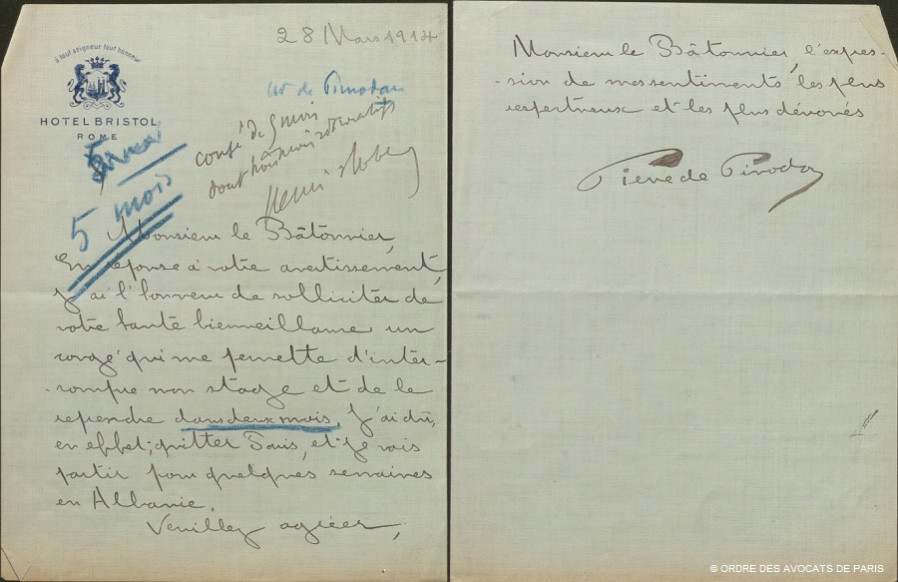 28 Mars 1914
à tout seigneur tout honneur
HOTEL BRISTOL
ROME
de Pimodan
congé de 5 mois
dont trois mois rétroactifs
Henri Robert
5 mois
5 mois
Monsieur le Bâtonnier,
En réponse à votre avertissement,
j'ai l'honneur de solliciter de
votre haute bienveillance un
congé qui me permette d'inter-
-rompre mon stage et de le
reprendre dans deux mois. J'ai dû,
en effet, quitter Paris, et je vais
partir pour quelques semaines
en Albanie.
Veuillez agréer,
Monsieur le Bâtonnier, l'expres-
-sion de mes sentiments les plus
respectueux et les plus dévoués
Pierre de Pimodan
© ORDRE DES AVOCATS DE PARIS